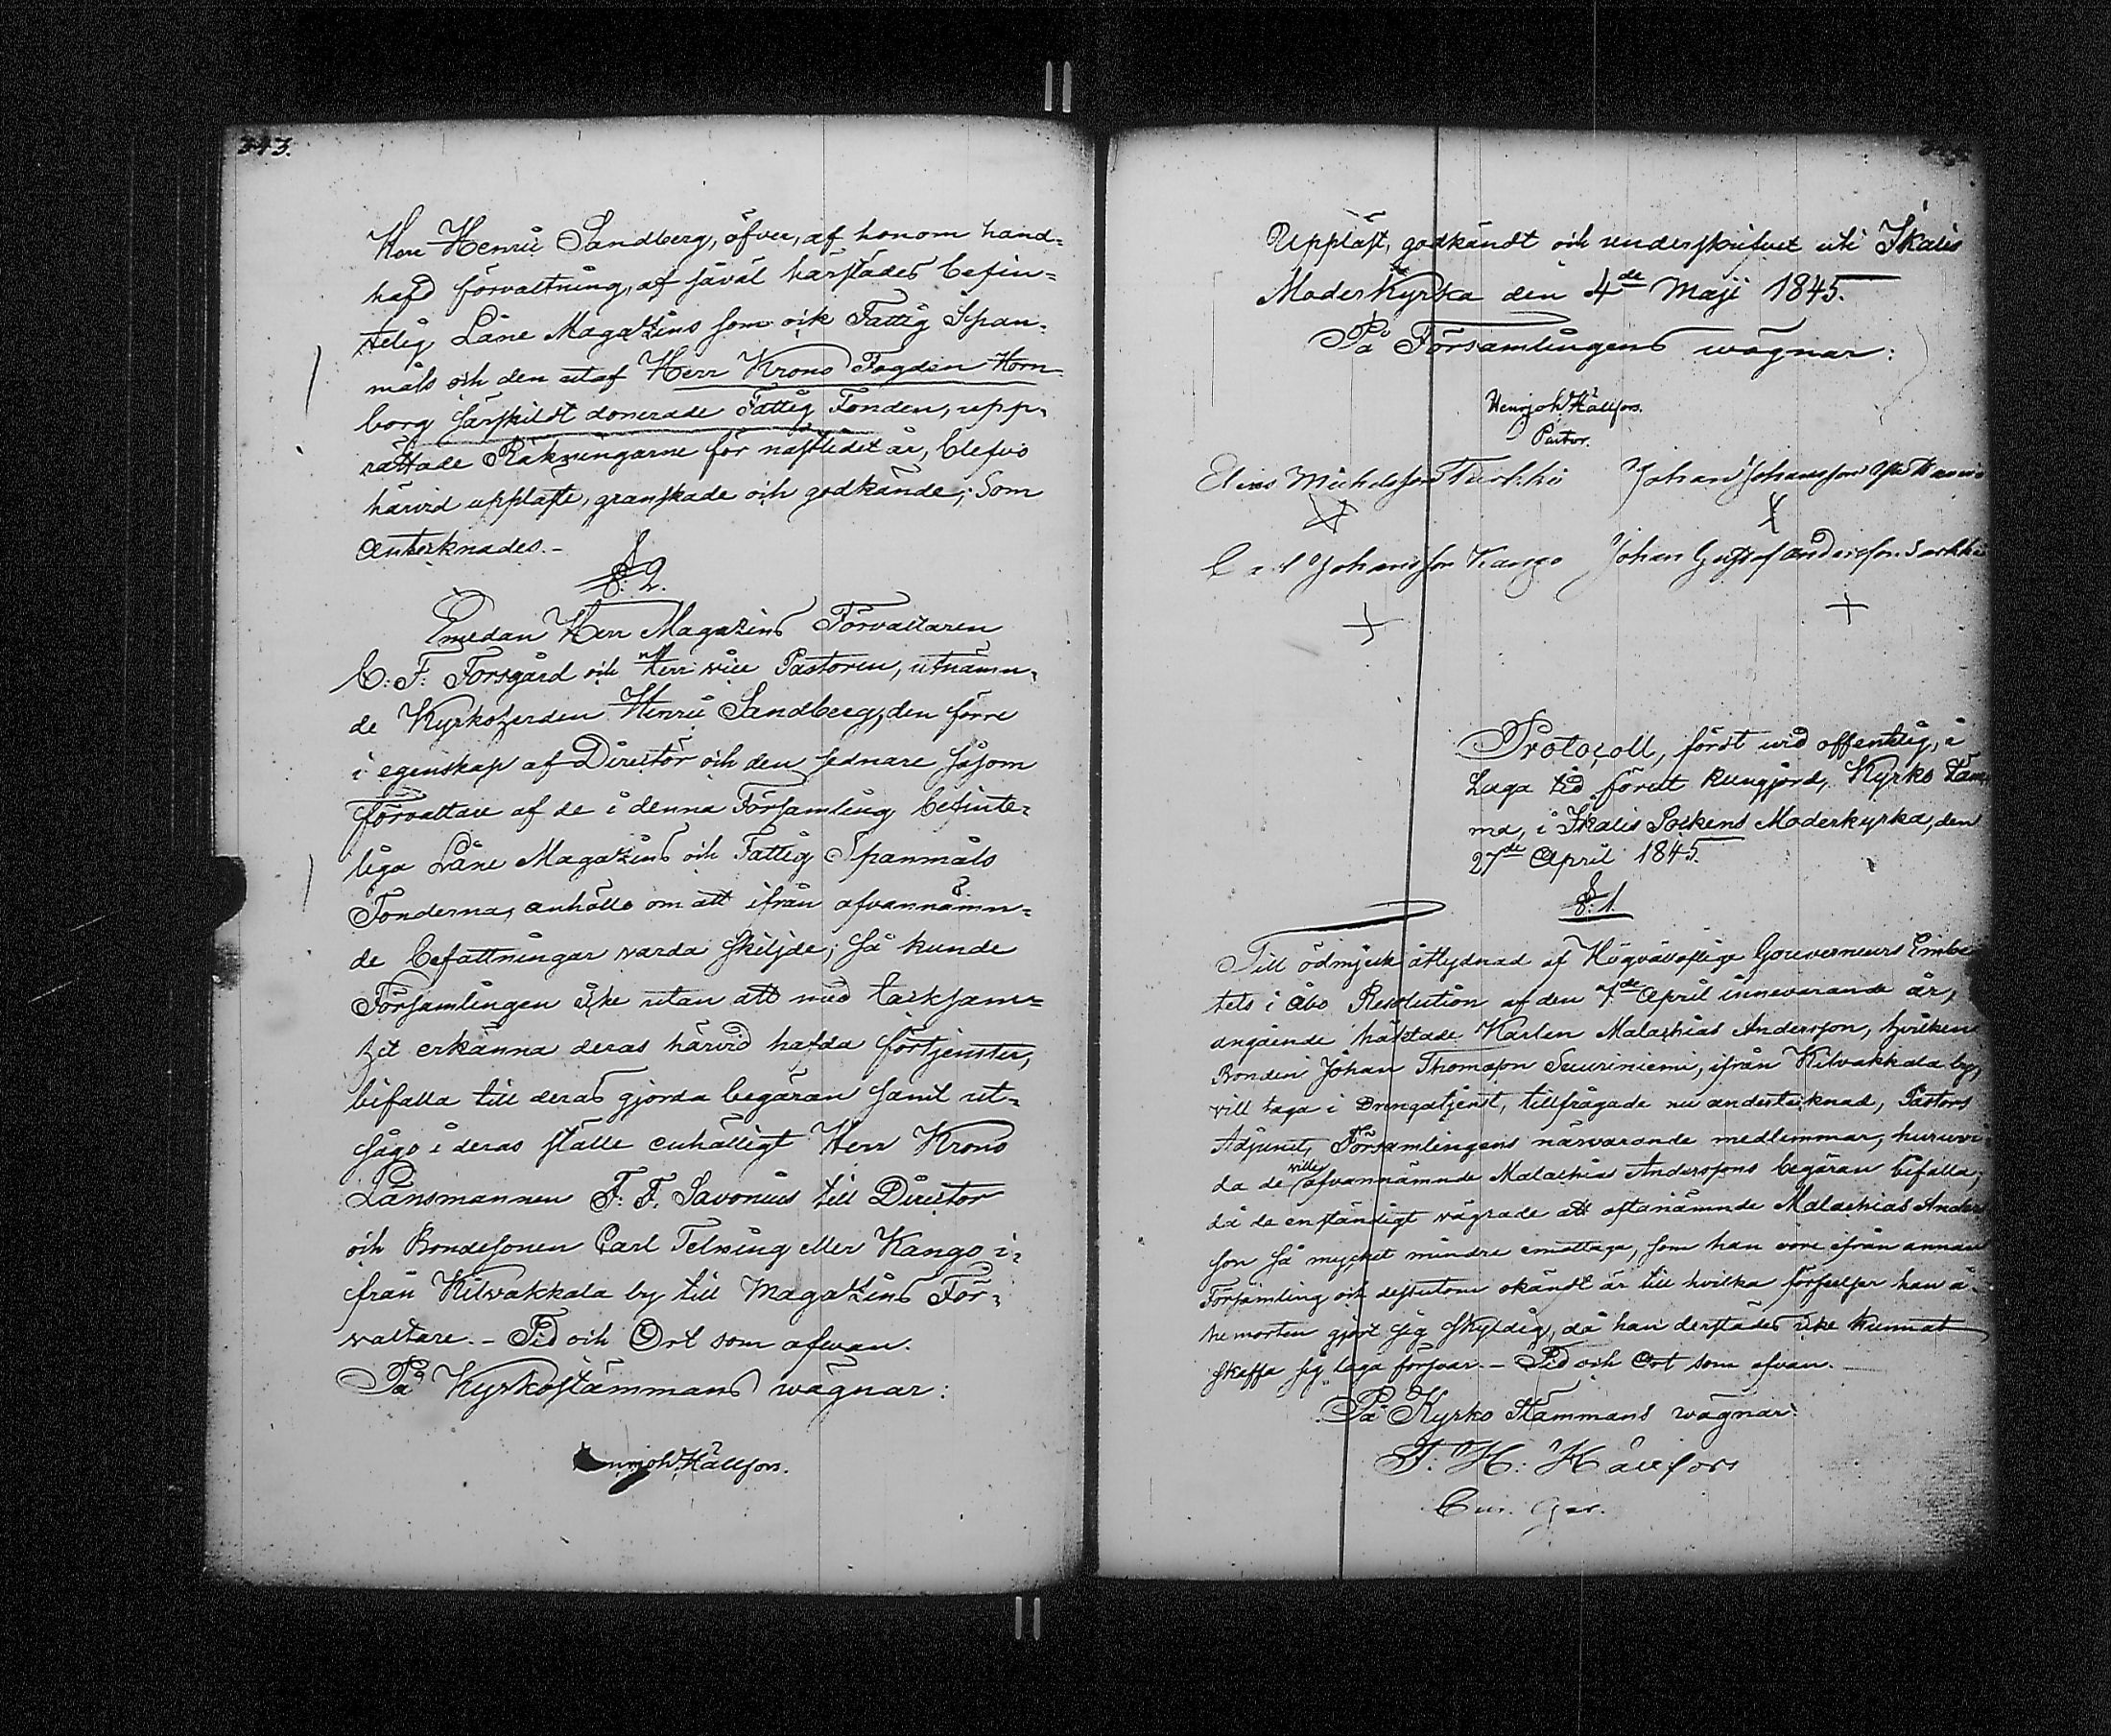 343.
Herr Henric Sandberg, öfver, af honom hand-
hafd förvaltning, af såväl härstädes befin-
telig Låne Magazins som ock Fattig Span-
måls och den utaf Herr Krono Fogden Horn-
borg särskildt donerade Fattig Fonden, upp-
rättade Räkningarne för nästledet år, blefvo
härvid uppläste, granskade och godkände; Som
antecknades.-
§: 2.
Emedan Herr Magazins Förvaltaren
C: F: Forsgård och Herr vice Pastoren, utnämn-
de Kyrkoherden Henric Sandberg, den förre
i egenskap af Director och den sednare såsom
förvaltare af de i denna Församling befinte-
liga Låne Magazins och Fattig Spanmåls
Fonderna, anhöllo om att ifrån ofvannämn-
de befattningar varda skiljde; så kunde
Församlingen icke utan att med tacksam-
het erkänna deras härvid hafda förtjenster,
bifalla till deras gjorda begäran samt ut-
sågo i deras ställe enhälligt Herr Krono
Länsmannen F: F. Savonius till Director
och Bondesonen Carl Telning eller Kango i-
från Kilvakkala by till Magazins För-
valtare. - Tid och Ort som ofvan.
På Kyrkostämmans wägnar:
Hällfors.
Uppläst, godkändt och underskrifvet uti Ikalis
Moderkyrka den 4de Maji 1845.
På Församlingens wägnar:
Henr Joh Hällfors.
Pastor.
Elias Michelsson Turkki Johan Johansson
X X
Carl Johansson Kango Johan Gustaf Andersson
+ +
Protocoll, fördt wid offentlig, i
Laga tid förut kungjord, Kyrko Stäm-
ma, i Ikalis Sockens Moderkyrka, den
27de April 1845.
§: 1.
Till ödmjuk åtlydnad af Högvälloflige Gouverneurs Embe-
tets i Åbo Resolution af den 7de April innevarande år,
angående häktade Karlen Malachias Andersson, hvilken
Bonden Johan Thomasson Suuriniemi, ifrån Kilvakkala by,
vill taga i Drengatjenst, tillfrågade undertecknad, Pastors
Adjunct, Församlingens närvarande medlemmar, huruvi-
da de ville ofvannämnde Malachias Anderssons begäran bifalla,
då de enständigt vägrade att oftanämnde Malachias Anders-
son så mycket mindre emottaga, som han vore ifrån annan
Församling och dessutom okändt är till hvilka förseelser han å
hemorten gjort sig skyldig, då han derstädes icke kunnat
skaffa sig laga försvar. - Tid och Ort som ofvan.
På Kyrko Stämmans wägnar:
F: H: Hällfors